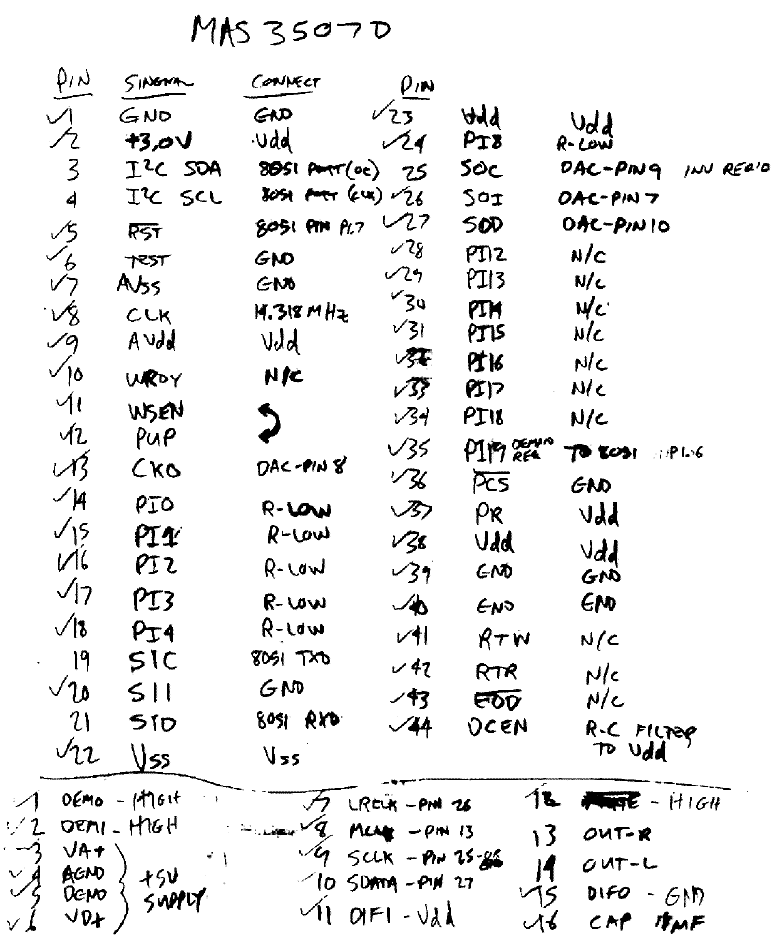 MAS 3507D
PIN SINGNAL CONNECT
✓1 GND GND
✓2 +3,0V Vdd
3 I2C SDA 8051 PORT (OC)
4 I2C SCL 8051 PORT (CLK)
✓5 RST 8051 PIN P1.7
✓6 TEST GND
✓7 AVSS GND
✓8 CLK 14.318 MHz
✓9 AVdd Vdd
✓10 WRDY N/C
✓11 WSEN
✓12 PUP
✓13 CKO DAC-PIN 8
✓14 PI0 R-LOW
✓15 PI1 R-LOW
✓16 PI2 R-LOW
✓17 PI3 R-LOW
✓18 PI4 R-LOW
19 SIC 8051 TXD
✓20 SII GND
21 SID 8051 RXD
✓22 Vss Vss
PIN
✓23 Vdd Vdd
✓24 PI8 R-LOW
25 SOC DAC-PIN9 INV REQ'D
✓26 SOI DAC-PIN7
✓27 SOD DAC-PIN10
✓28 PI12 N/C
✓29 PI13 N/C
✓30 PI14 N/C
✓31 PI15 N/C
✓32 PI16 N/C
✓33 PI17 N/C
✓34 PI18 N/C
✓35 PI19 DEMAND REQ TO 8051 P1.6
✓36 PCS GND
✓37 PR Vdd
✓38 Vdd Vdd
✓39 GND GND
✓40 GND GND
✓41 RTW N/C
✓42 RTR N/C
✓43 EOD N/C
✓44 DCEN R-C FILTER
TO Vdd
✓1 DEM0 - HIGH
✓2 DEM1 - HIGH
✓3 VA+
✓4 AGND
✓5 DGND
✓6 VD+
+5V
SUPPLY
✓7 LRCLK - PIN 26
✓8 MCLK - PIN 13
✓9 SCLK - PIN 25
✓10 SDATA - PIN 27
✓11 DIF1 - Vdd
12 - HIGH
13 OUT-R
14 OUT-L
✓15 DIF0 - GND
✓16 CAP 1MF